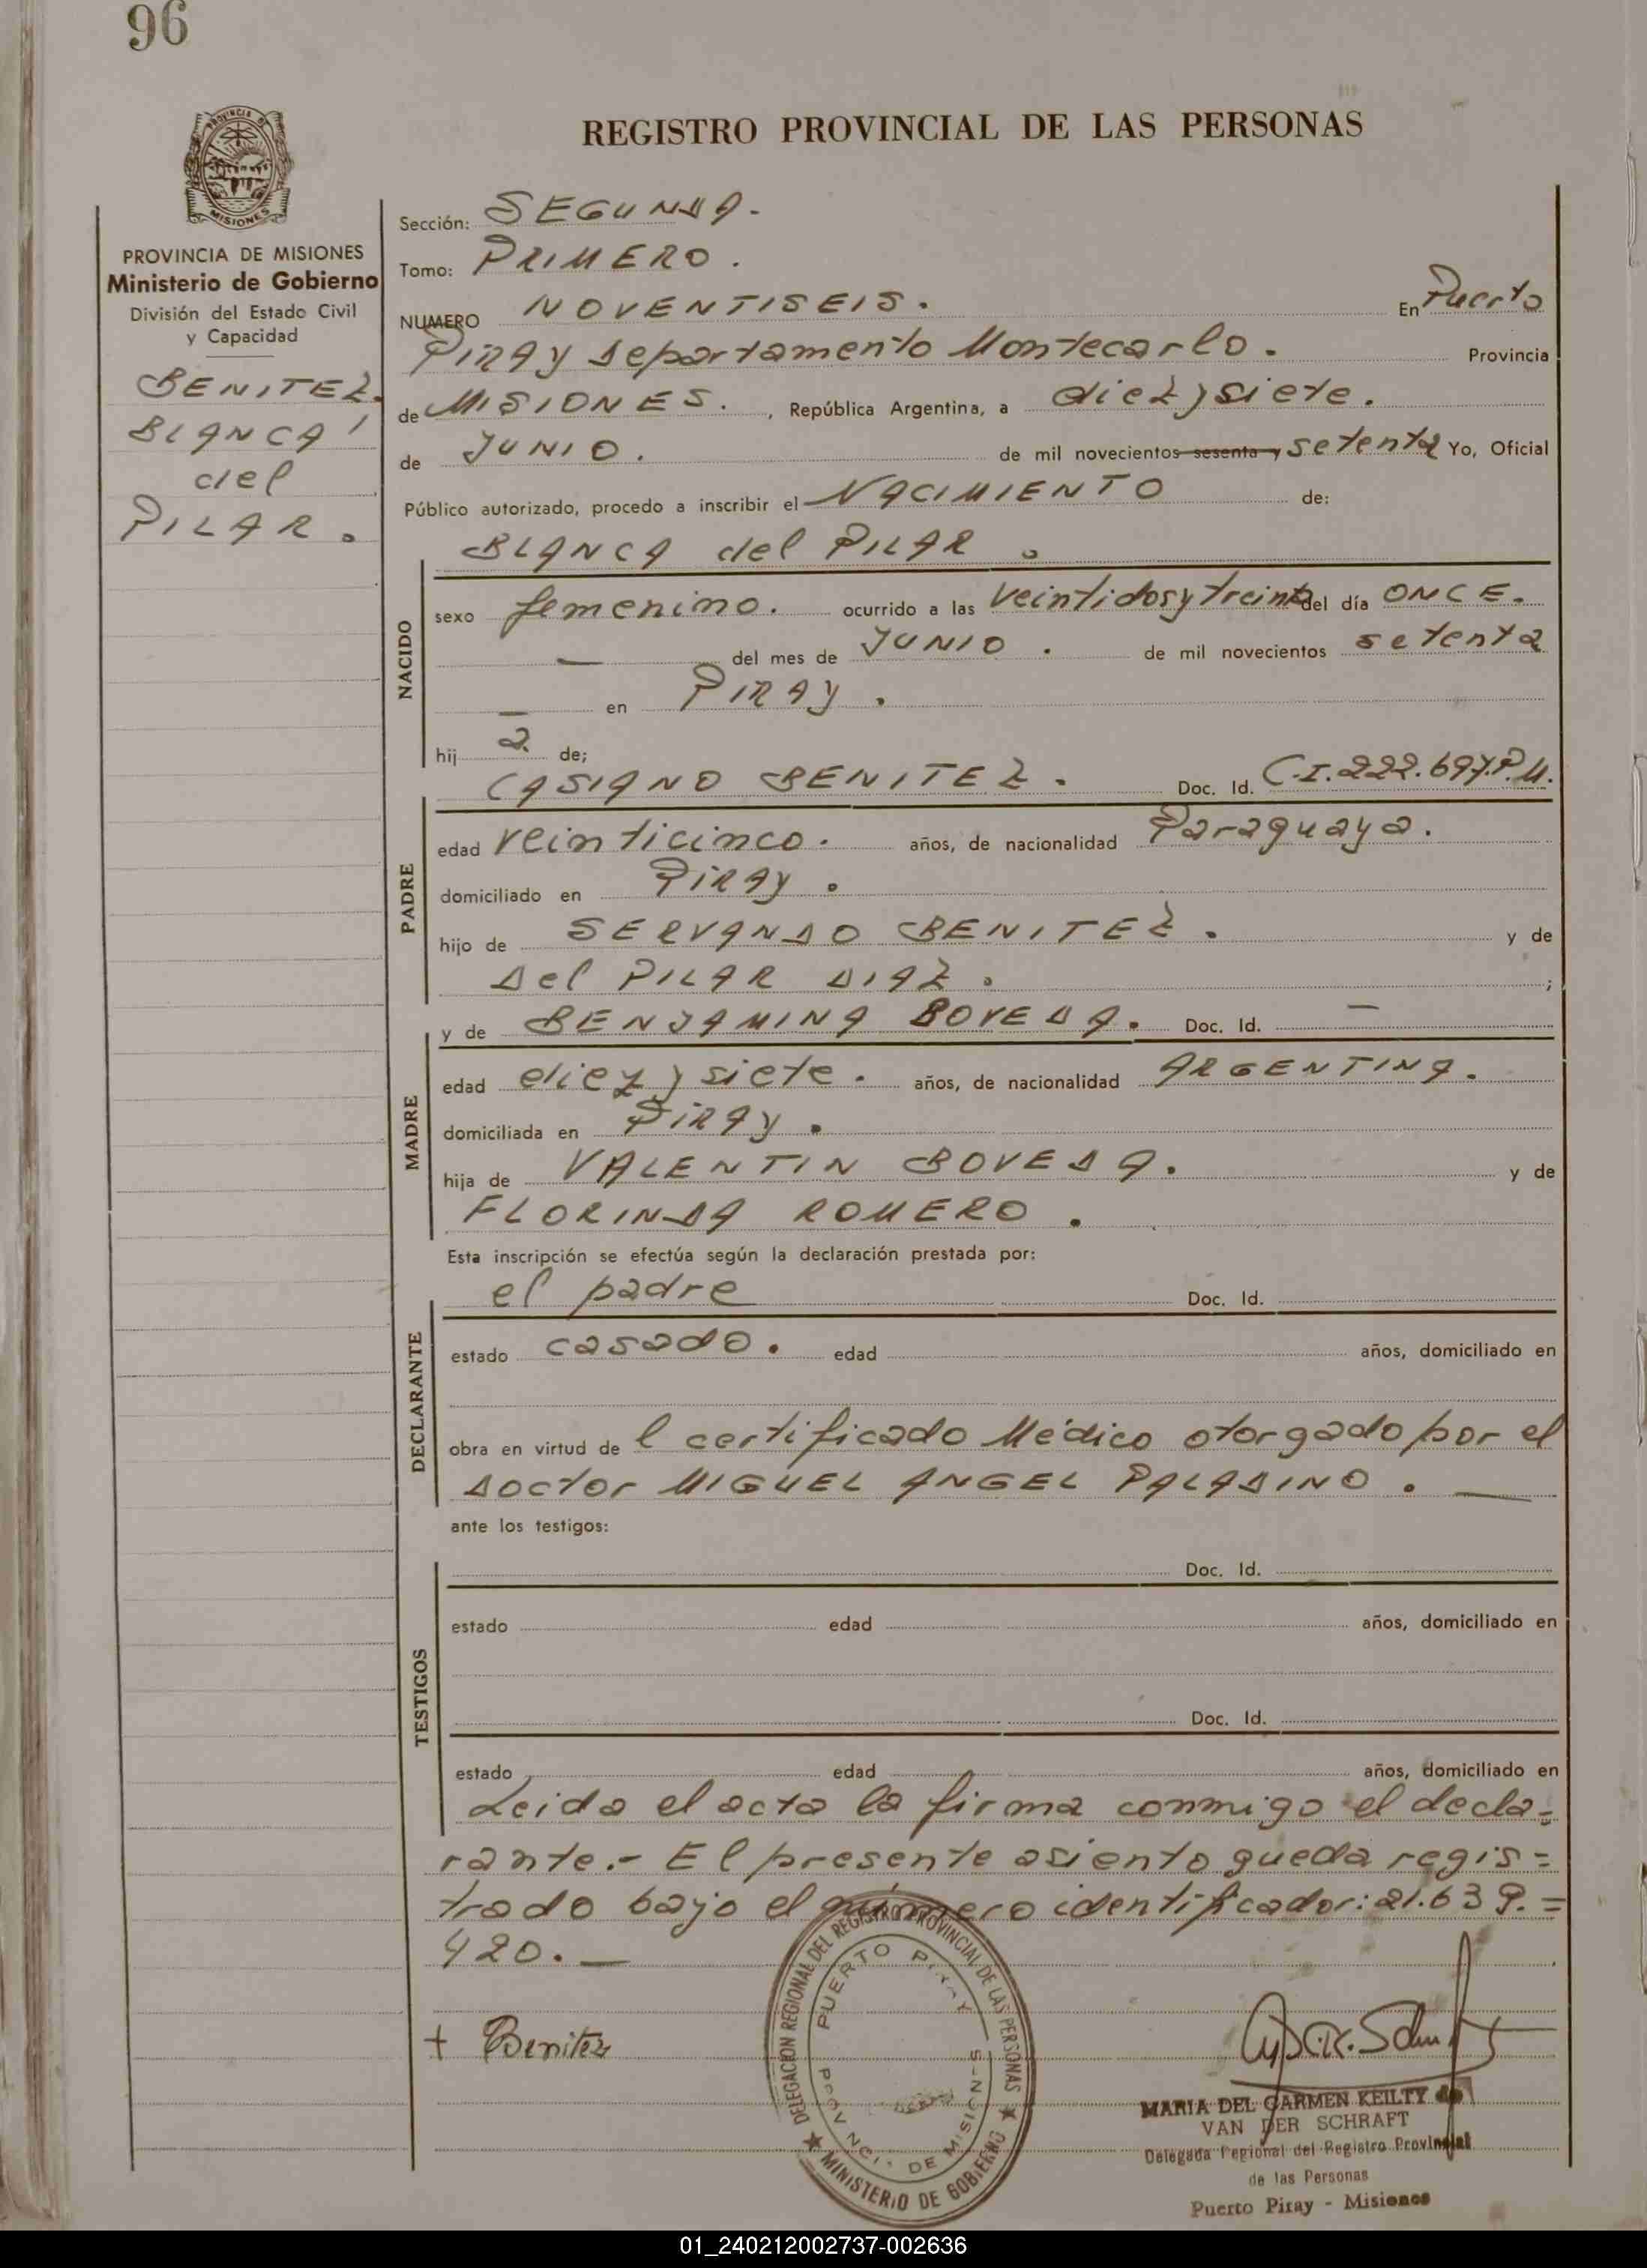 96
PROVINCIA DE
MISIONES
REGISTRO PROVINCIAL DE LAS PERSONAS
PROVINCIA DE MISIONES
Ministerio de Gobierno
División del Estado Civil
y Capacidad
BENITEZ.
BLANCA
del
PILAR.
Sección: SEGUNDA.
Tomo: PRIMERO.
NUMERO NOVENTISEIS. En Puerto
PIRAY departamento Montecarlo. Provincia
de MISIONES., República Argentina, a diez y siete.
de JUNIO. de mil novecientos sesenta y setenta Yo, Oficial
Público autorizado, procedo a inscribir el NACIMIENTO de:
BLANCA del PILAR.
NACIDO
sexo femenino. ocurrido a las veintidos y treinta del día ONCE.
— del mes de JUNIO. de mil novecientos setenta
— en PIRAY.
hij a de;
CASIANO BENITEZ. Doc. Id. C.I.222.697.P.M.
PADRE
edad veinticinco. años, de nacionalidad Paraguaya.
domiciliado en PIRAY.
hijo de SERVANDO BENITEZ. y de
Del PILAR DIAZ. ;
y de BENJAMINA BOVEDA. Doc. Id. —
MADRE
edad diez y siete. años, de nacionalidad ARGENTINA.
domiciliada en PIRAY.
hija de VALENTIN BOVEDA. y de
FLORINDA ROMERO.
Esta inscripción se efectúa según la declaración prestada por:
el padre Doc. Id.
DECLARANTE
estado casado. edad años, domiciliado en
obra en virtud de l certificado Médico otorgado por el
Doctor MIGUEL ANGEL PALADINO. —
ante los testigos:
Doc. Id.
TESTIGOS
estado edad años, domiciliado en
Doc. Id.
estado edad años, domiciliado en
Leida el acta la firma conmigo el decla-
rante.- El presente asiento queda regis=
trado bajo el número identificador: 21.639.=
420. —
+ Benitez
DELEGACION REGIONAL DEL REGISTRO PROVINCIAL DE LAS PERSONAS
★ MINISTERIO DE GOBIERNO ★
PUERTO PIRAY
PROVINCIA DE MISIONES
MARIA DEL CARMEN KEILTY de
VAN DER SCHRAFT
Delegada Regional del Registro Provincial
de las Personas
Puerto Piray - Misiones
01_240212002737-002636